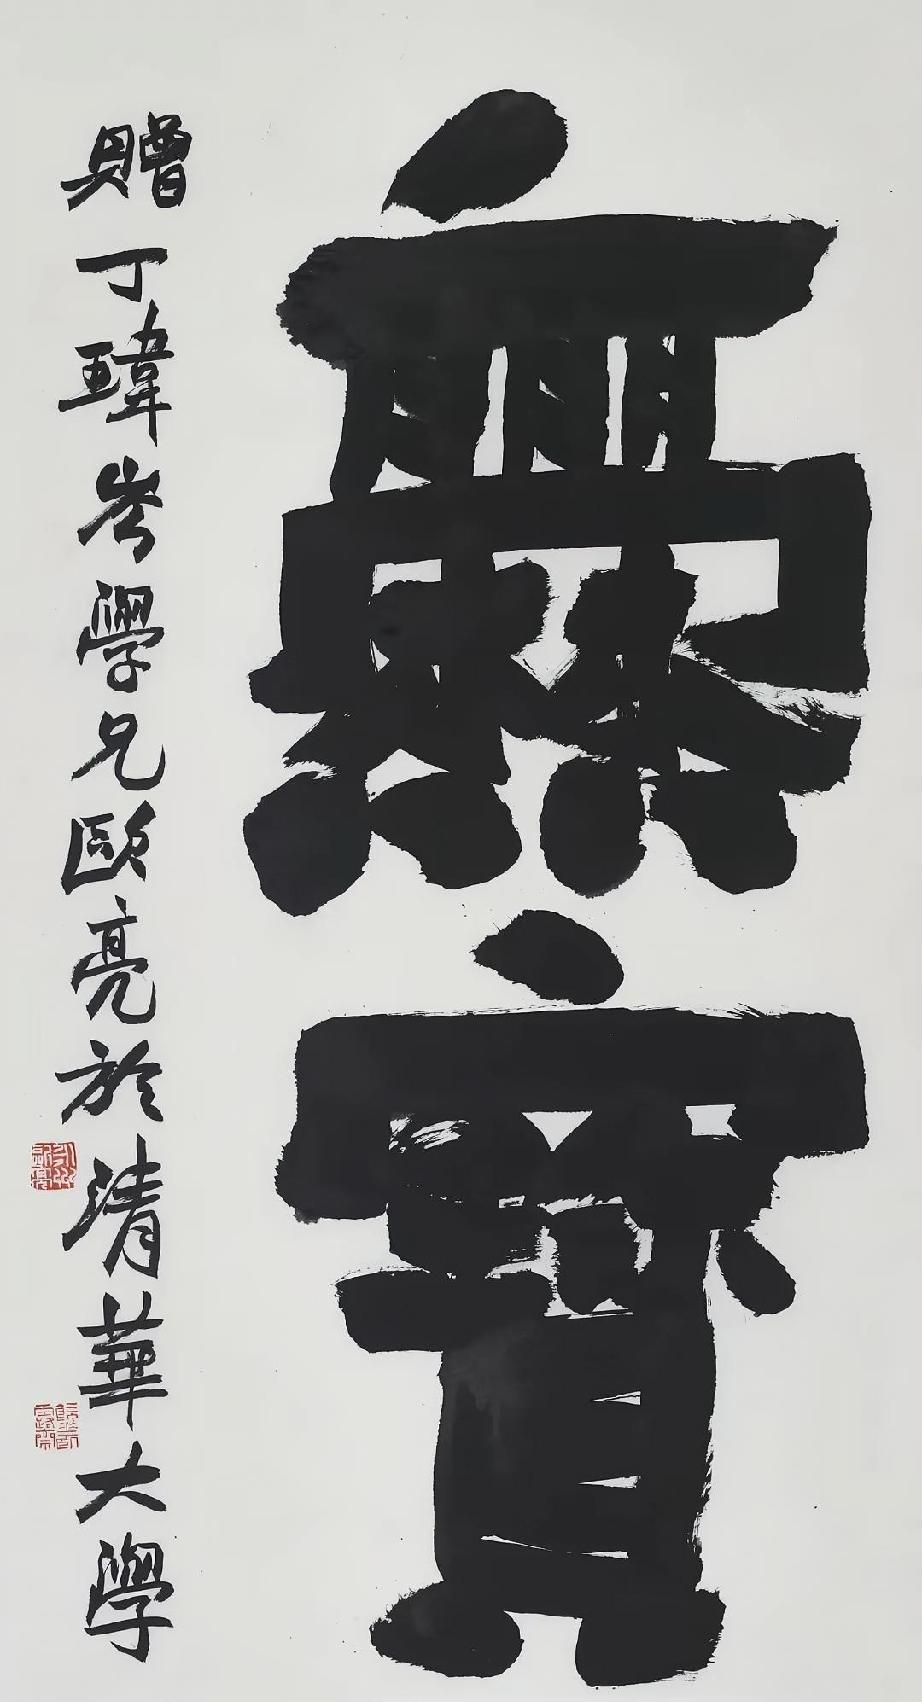 爨寶
贈丁瑋岑學兄歐亮於清華大學